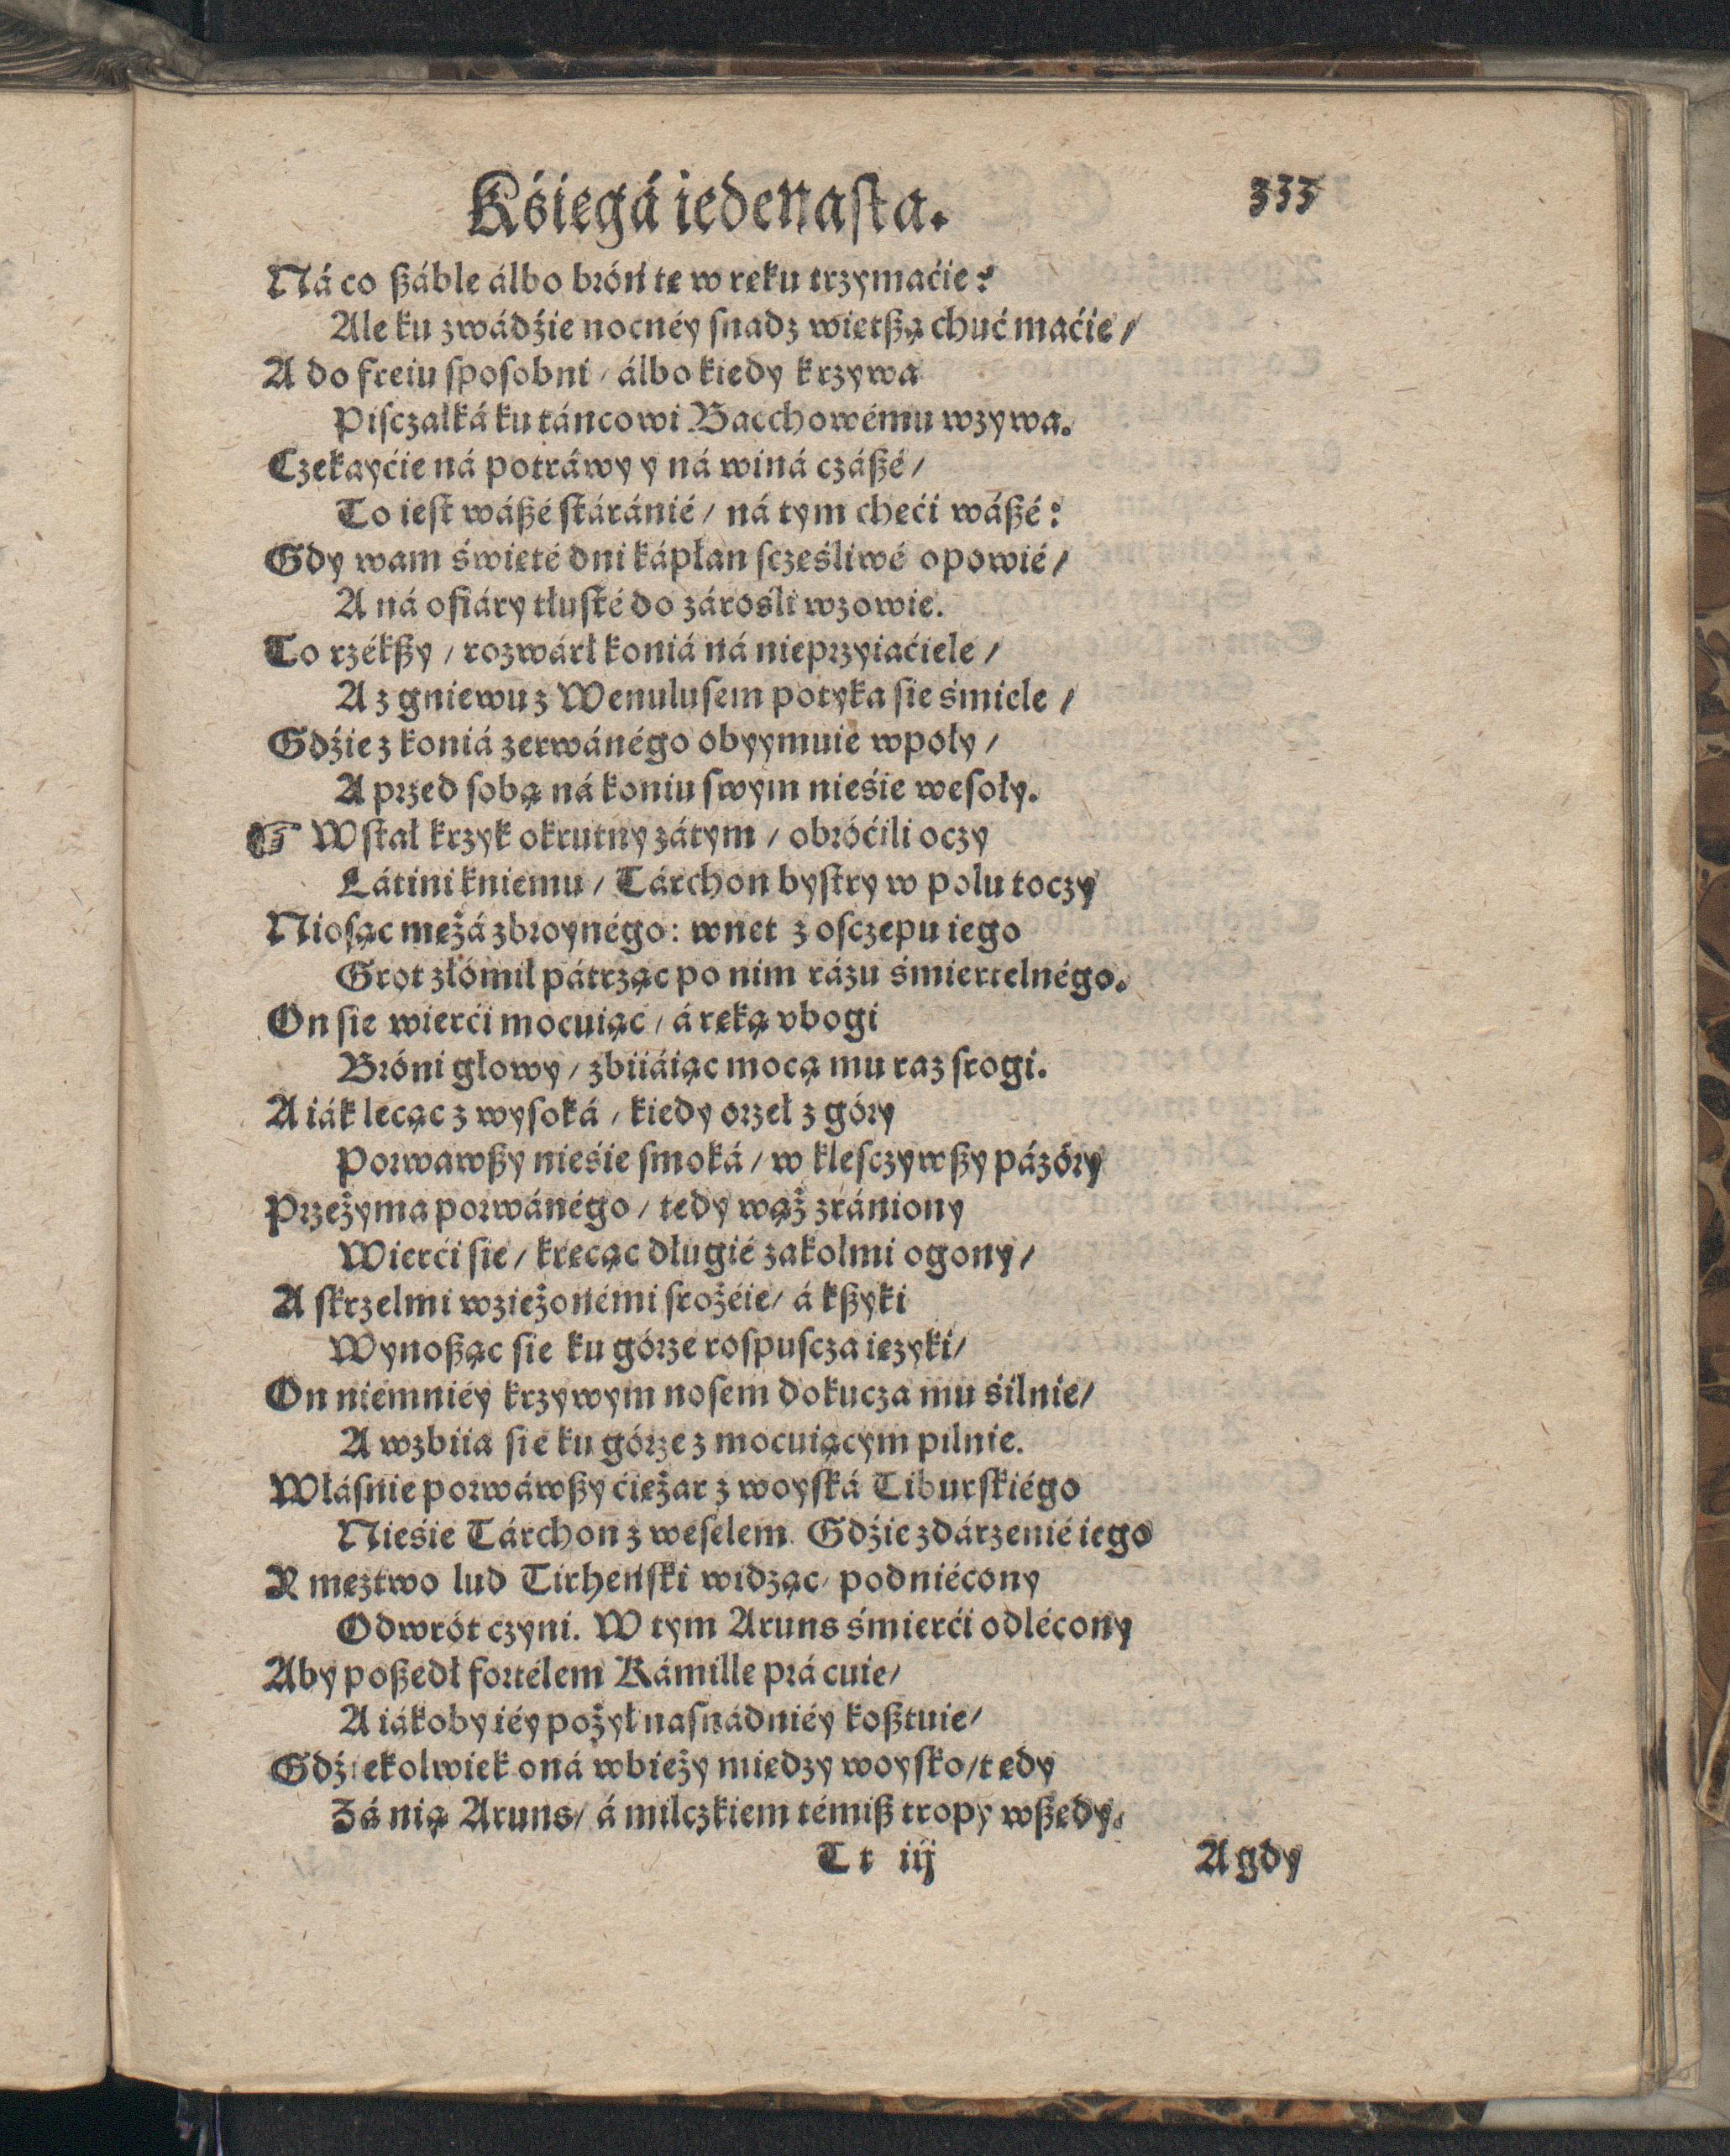 Kśięgá iedenasta. 333
Ná co ßáble álbo bróń tę w ręku trzymaćie?
Ale ku zwádźie nocnéy snadz więtßą chuć maćie /
A do freiu sposobni / álbo kiedy krzywa
Pisczałká ku táncowi Bacchowému wzywa.
Czekayćie ná potráwy y ná winá czáßé /
To iest wáßé stáránié / ná tym chęći wáßé:
Gdy wam święté dni kápłan sczęśliwé opowié /
A ná ofiáry tłusté do zárośli wzowie.
To rzékßy / rozwárł koniá ná nieprzyiaćiele /
A z gniewu z Wenulusem potyka się śmiele /
Gdźie z koniá zerwánégo obyymuie wpoły /
A przed sobą ná koniu swym nieśie wesoły.
☞ Wstał krzyk okrutny zátym / obróćili oczy
Látini kniemu / Tárchon bystry w polu toczy
Niosąc mężá zbroynégo: wnet z osczepu iego
Grot złómił pátrząc po nim rázu śmiertelnégo.
On się wierći mocuiąc / á ręką vbogi
Bróni głowy / zbiiáiąc mocą mu raz srogi.
A iák lecąc z wysoká / kiedy orzeł z góry
Porwawßy nieśie smoká / w klesczywßy pázóry
Przeżyma porwánégo / tedy wąż zrániony
Wierći się / kręcąc długié zakolmi ogony /
A skrzelmi wzieżonémi srożéie / á kßyki
Wynoßąc się ku górze rospuscza ięzyki /
On niemniéy krzywym nosem dokucza mu śilnie /
A wzbiia się ku górze z mocuiącym pilnie.
Włásnie porwáwßy ćiężar z woyská Tiburskiégo
Nieśie Tárchon z weselem. Gdźie zdárzenié iego
Y męztwo lud Tirheński widząc / podniécony
Odwrót czyni. W tym Aruns śmierći odlécony
Aby poßedł fortélem Kámille prácuie /
A iákoby iéy pożył nasnádniéy koßtuie /
Gdźiekolwiek oná wbieży między woysko / tedy
Zá nią Aruns / á milczkiem témiß tropy wßędy.
Tt iij A gdy